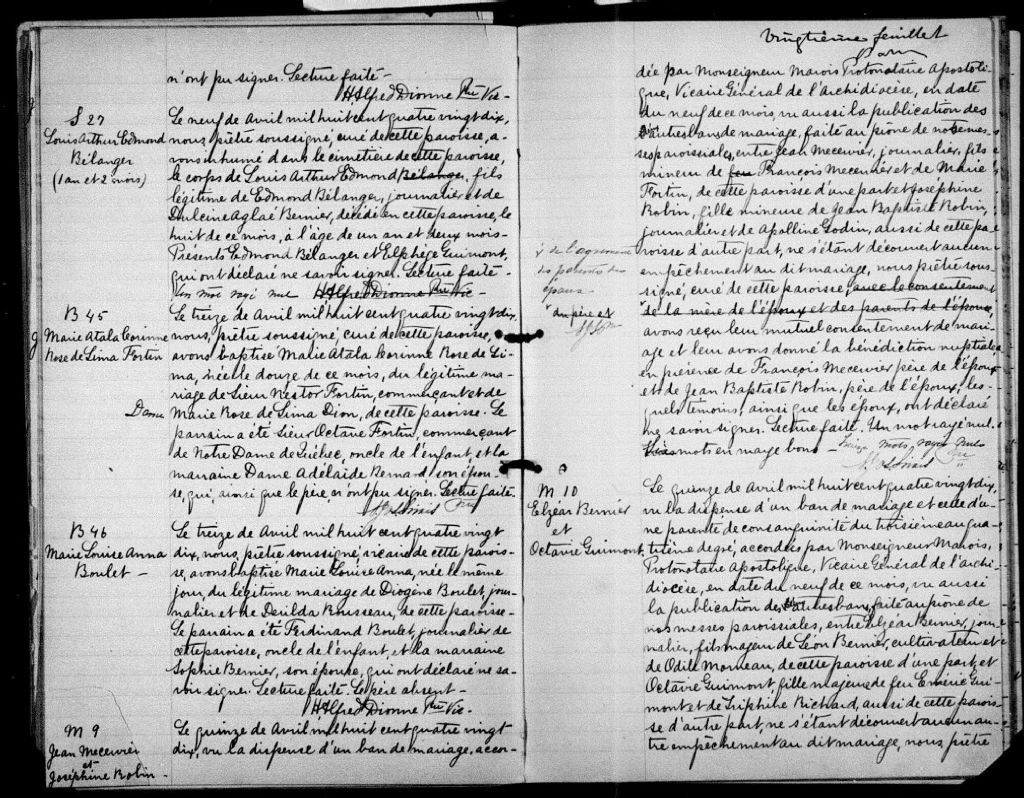 n'ont pu signer. Lecture faite -
H Alfred Dionne Ptre Vic -
S 27
Louis Arthur Edmond
Bélanger
(1 an et 2 mois)
Le neuf de Avril mil huit cent quatre vingt dix,
nous, prêtre soussigné, curé de cette paroisse, a-
vons inhumé dans le cimetière de cette paroisse,
le corps de Louis Arthur Edmond Bélanger, fils
légitime de Edmond Bélanger, journalier et de
Dulcine Aglaé Bernier, décédé en cette paroisse, le
huit de ce mois, à l'âge de un an et deux mois -
Présents Edmond Bélanger et Elphège Guimont,
qui ont déclaré ne savoir signer. Lecture faite -
Un mot rayé nul H Alfred Dionne Ptre Vic -
B 45
Marie Atala Corinne
Rose de Lima Fortin
Le treize de Avril mil huit cent quatre vingt dix,
nous, prêtre soussigné, curé de cette paroisse,
avons baptisé Marie Atala Corinne Rose de Li-
ma, née le douze de ce mois, du légitime ma-
riage de Sieur Nestor Fortin, commerçant et de
Dame Marie Rose de Lima Dion, de cette paroisse. Le
parrain a été Sieur Octave Fortin, commerçant
de Notre Dame de Québec, oncle de l'enfant, et la
marraine Dame Adélaide Bernard son épou-
se, qui, ainsi que le père, ont pu signer. Lecture faite.
B 46
Marie Louise Anna
Boulet -
Le treize de Avril mil huit cent quatre vingt
dix, nous, prêtre soussigné, vicaire de cette parois-
se, avons baptisé Marie Louise Anna, née le même
jour, du légitime mariage de Diogène Boulet, jour-
nalier et de Derilda Rousseau, de cette paroisse -
Le parrain a été Ferdinand Boulet, journalier de
cette paroisse, oncle de l'enfant, et la marraine
Sophie Bernier, son épouse, qui ont déclaré ne sa-
voir signer. Lecture faite. Le père absent -
H Alfred Dionne Ptre Vic -
M 9
Jean Mecenvier
et
Joséphine Robin -
Le quinze de Avril mil huit cent quatre vingt
dix, vu la dispense d'un ban de mariage, accor-
Vingtième feuillet
dée par Monseigneur Marois Protonotaire Apostoli-
que, Vicaire Général de l'Archidiocèse, en date
du neuf de ce mois, vu aussi la publication des
autres bans de mariage, faite au prône de nos mes-
ses paroissiales, entre Jean Mecenvier, journalier, fils
mineur de feu François Mecenvier et de Marie
Fortin, de cette paroisse d'une part et Joséphine
Robin, fille mineure de Jean Baptiste Robin,
journalier et de Apolline Godin, aussi de cette pa-
roisse d'autre part, ne s'étant découvert aucun
empêchement au dit mariage, nous prêtre sous-
signé, curé de cette paroisse, avec le consentement
de la mère de l'époux et des parents de l'épouse,
avons reçu leur mutuel consentement de mari-
age et leur avons donné la bénédiction nuptiale
en présence de François Mecenvier père de l'époux
et de Jean Baptiste Robin, père de l'époux, les-
quels témoins, ainsi que les époux, ont déclaré
ne savoir signer. Lecture faite. Un mot rayé nul.
mots en marge bons - mots rayés nuls
de l'agrément
des parents des
époux
du père et
M 10
Elzéar Bernier
et
Octavie Guimont,
Le quinze de Avril mil huit cent quatre vingt dix,
vu la dispense d'un ban de mariage et celle d'u-
ne parenté de consanguinité du troisième au qua-
trième degré, accordés par Monseigneur Marois,
Protonotaire Apostolique, Vicaire Général de l'archi-
diocèse, en date du neuf de ce mois, vu aussi
la publication des autres bans, faite au prône de
nos messes paroissiales, entre Elzéar Bernier, jour-
nalier, fils majeur de Léon Bernier, cultivateur et
de Odile Morneau, de cette paroisse d'une part, et
Octavie Guimont, fille majeure de feu Eméric Gui-
mont et de Sriphile Richard, aussi de cette parois-
se d'autre part, ne s'étant découvert aucun au-
tre empêchement au dit mariage, nous prêtre